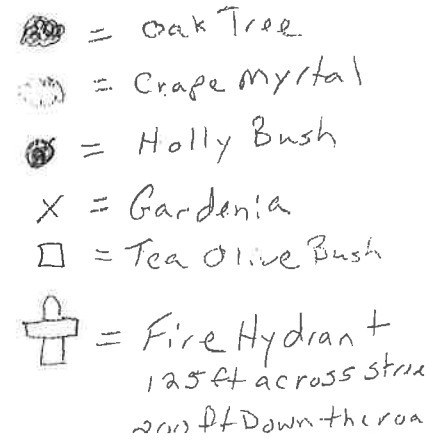 = Oak Tree
= Crape Myrtal
= Holly Bush
X = Gardenia
□ = Tea Olive Bush
= Fire Hydrant
125 ft across
200 ft Down the